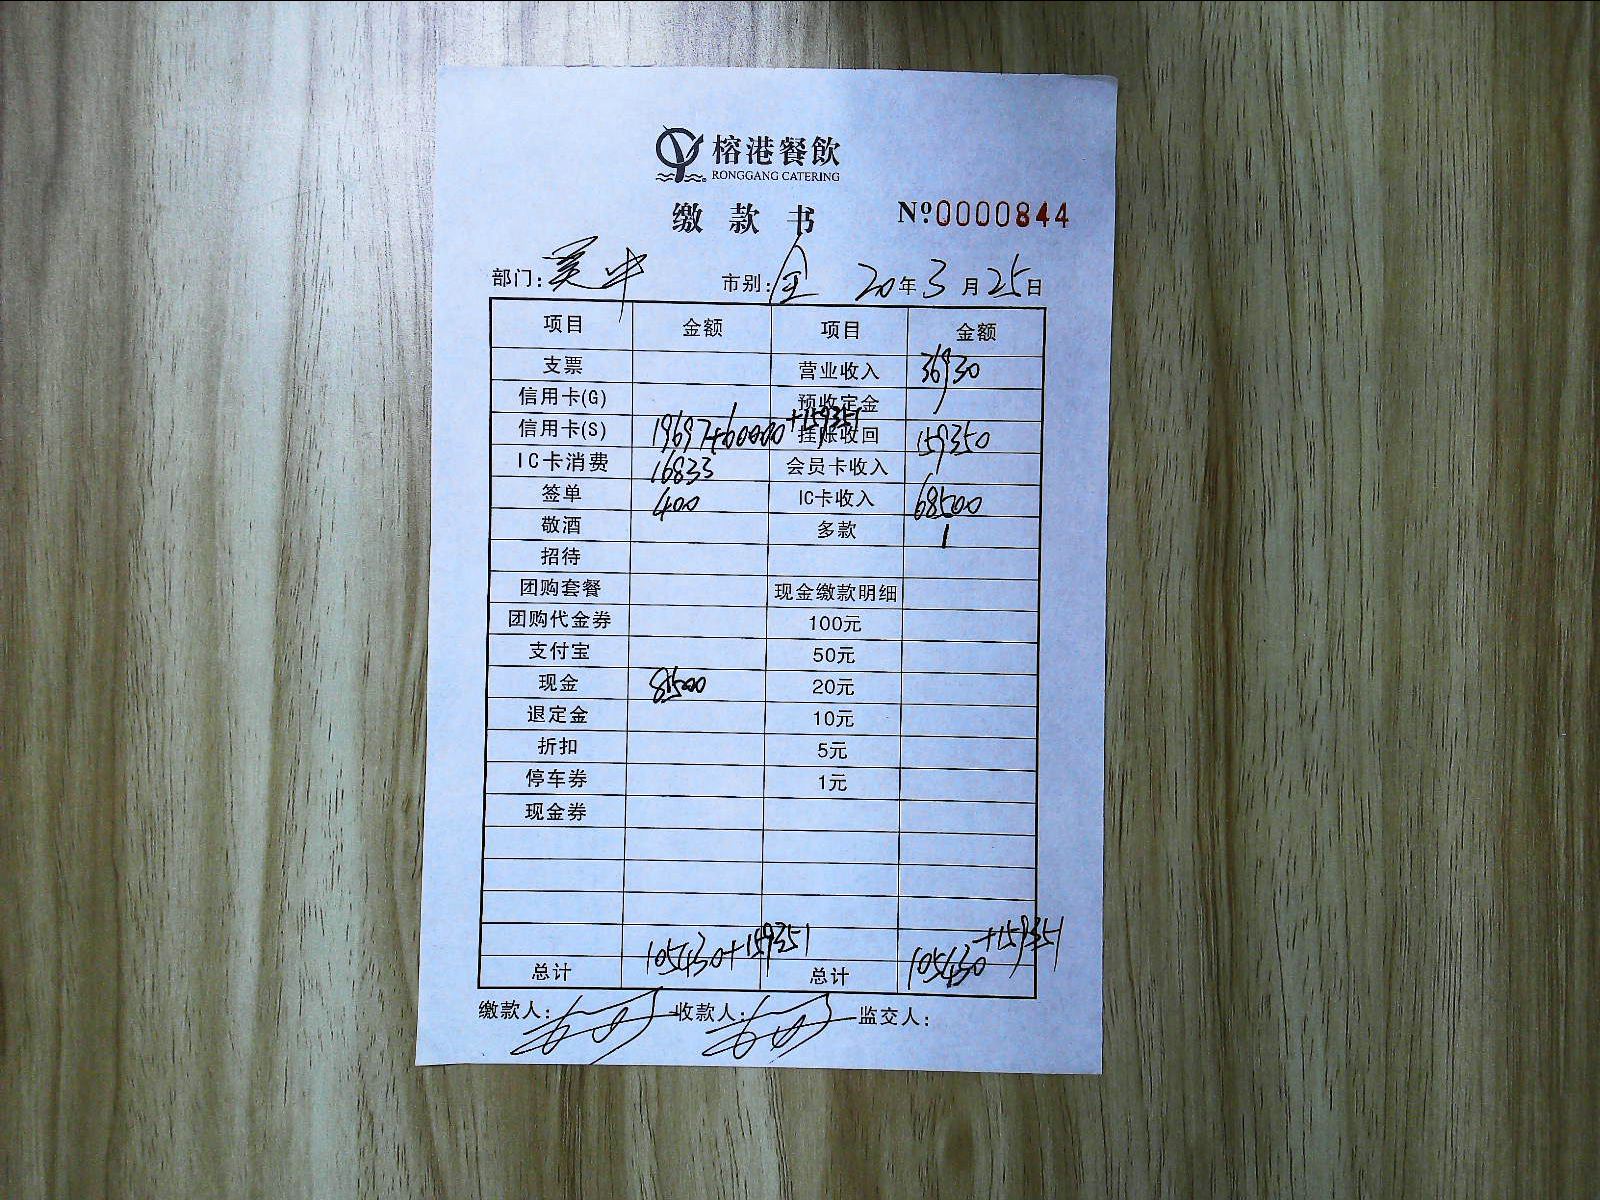 榕港餐飲
RONGGANG CATERING
缴款书 Nº0000844
部门: 市别:全 20年3月25日
项目 金额 项目 金额
支票 营业收入 36930
信用卡(G) 预收定金
信用卡(S) 19697+60000+159351 挂账收回 159350
IC卡消费 16833 会员卡收入
签单 400 IC卡收入 68500
敬酒 多款 1
招待
团购套餐 现金缴款明细
团购代金券 100元
支付宝 50元
现金 8500 20元
退定金 10元
折扣 5元
停车券 1元
现金券
总计 105430+159351 总计 105430+159351
缴款人: 收款人: 监交人: